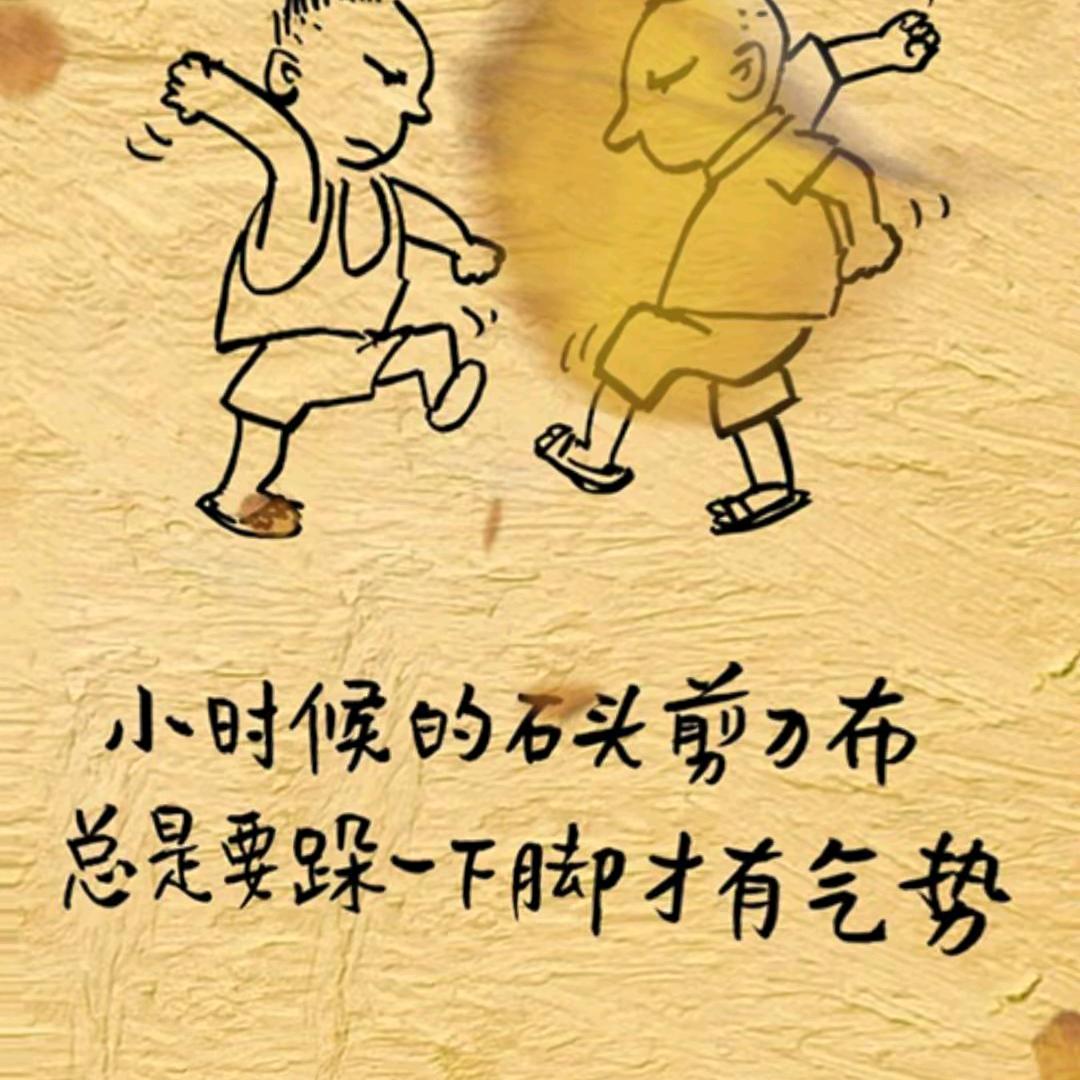 小时候的石头剪刀布
总是要跺一下脚才有气势